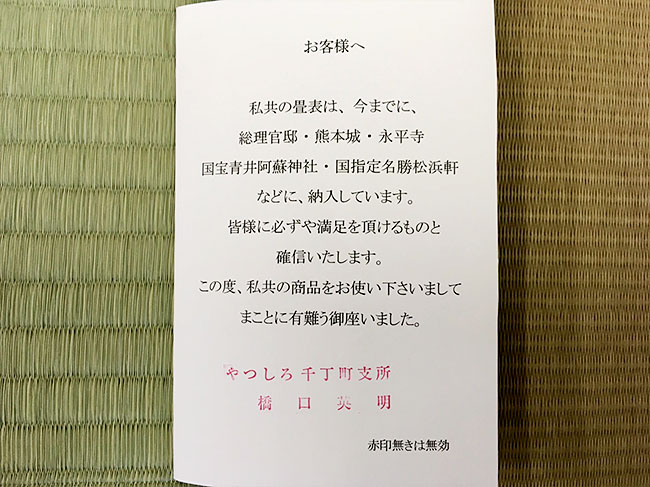 お客様へ
私共の畳表は、今までに、
総理官邸・熊本城・永平寺
国宝青井阿蘇神社・国指定名勝松浜軒
などに、納入しています。
皆様に必ずや満足を頂けるものと
確信いたします。
この度、私共の商品をお使い下さいまして
まことに有難う御座いました。
やつしろ千丁町支所
橋口英明
赤印無きは無効